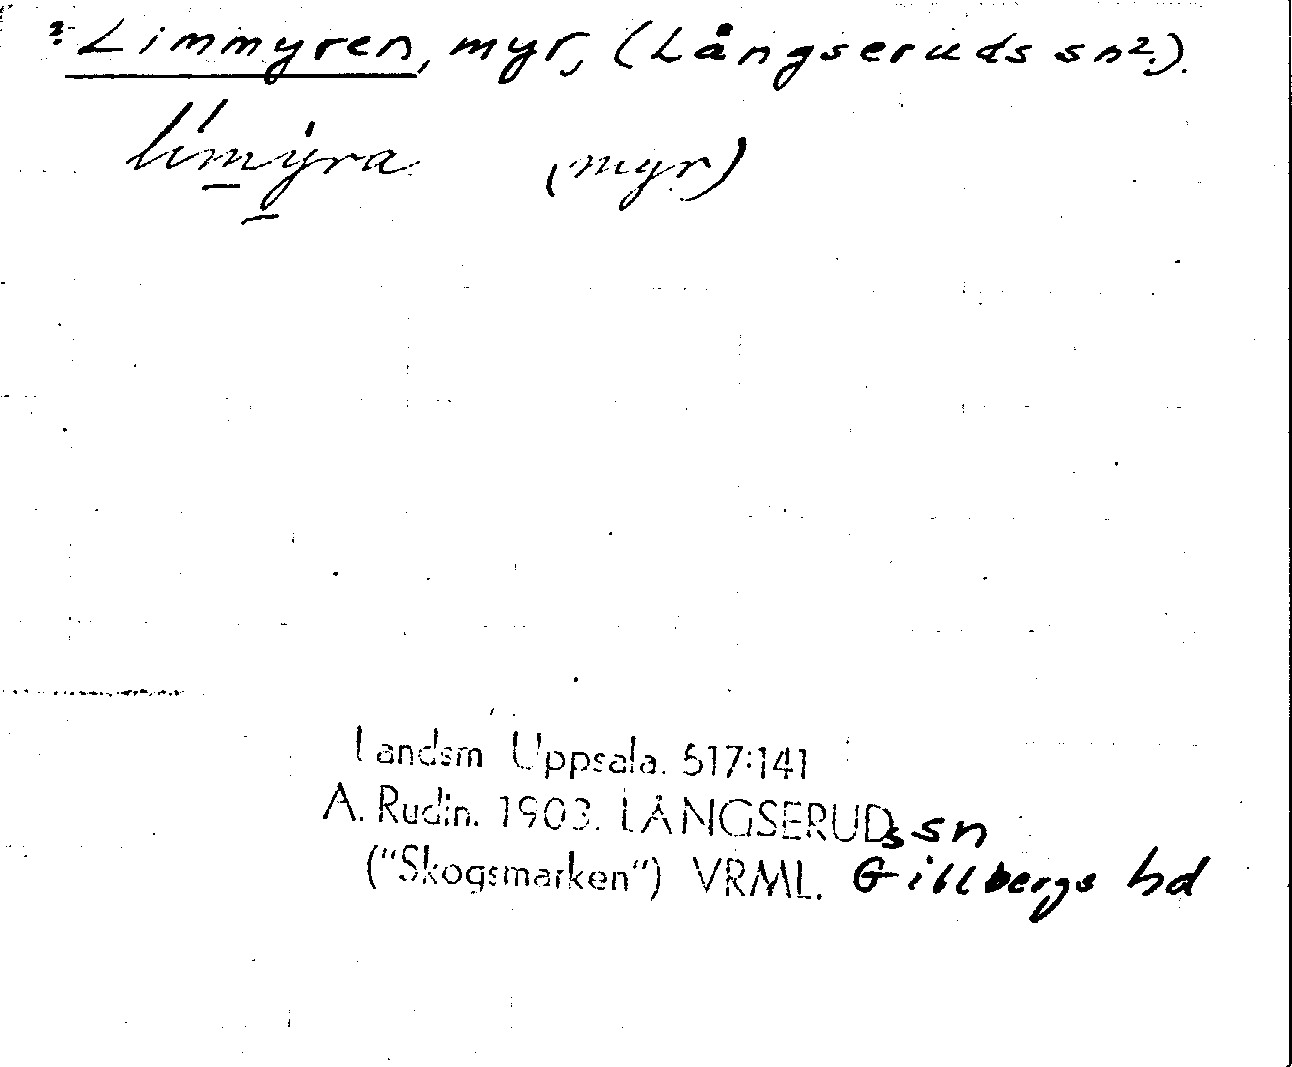 ? Limmyren, myr, (Långseruds sn?).
lím̱ẏ̱ra (myr)
Landsm Uppsala. 517:141
A. Rudin. 1903. LÅNGSERUDs sn
("Skogsmarken") VRML. Gillbergs hd